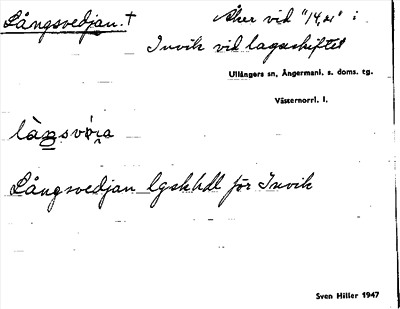 Långsvedjan. †
Åker vid "14,21" i
Invik vid lagaskiftet
Ullångers sn, Ångermanl. s. doms. tg.
Västernorrl. l.
Långsvedjan lgskhdl för Invik
Sven Hiller 1947